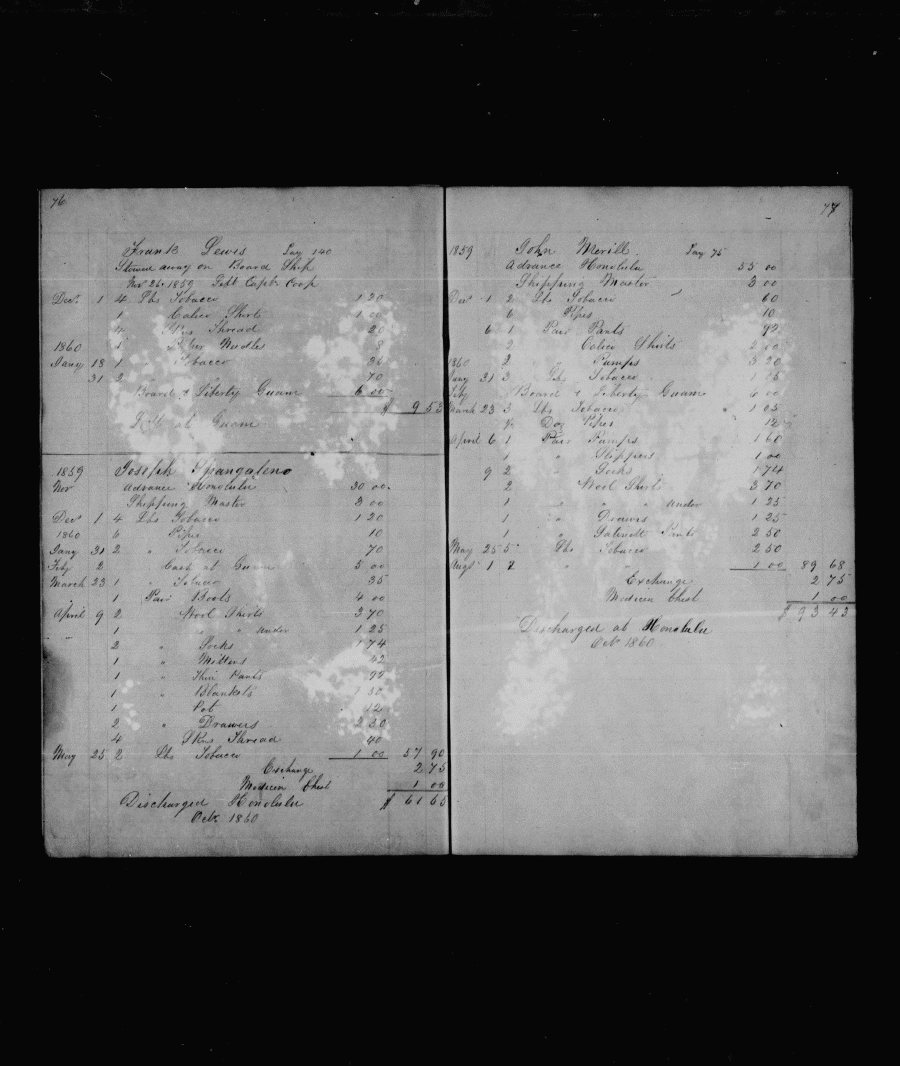 76
Frank Lewis Lay 140
Stowed away on Board Ship
Nov 26 1859 Capt Coop
Decr 1 4 Lbs Tobacco 1 20
1 Calico Shirts 1 00
Thread 20
1860 1 Needles 8
Jany 13 1 Tobacco 35
31 2 " 70
Board & Liberty Guam 6 00
$ 9 53
Left at Guam
1859 Joseph Spangaleno
Nov Advance Honolulu 30 00
Shipping Master 3 00
Decr 1 4 Lbs Tobacco 1 20
1860 6 Pipes 10
Jany 31 2 " Tobacco 70
Feby 2 Cash at Guam 5 00
March 23 1 " Tobacco 35
" 1 Pair Boots 4 00
April 9 2 Wool Shirts 3 70
" 1 " " Under 1 25
2 " Socks 1 74
1 " Mittens 42
1 " Thin Pants 92
1 " Blankets 50
1 Pot 12
2 " Drawers 2 50
4 Skns Thread 40
May 25 2 Lbs Tobacco 1 00 57 90
Exchange 2 75
Medicin Chest 1 00
Discharged Honolulu $ 61 65
Octr 1860
77
1859 John Merill Lay 75
Advance Honolulu 55 00
Shipping Master 3 00
Decr 1 2 Lbs Tobacco 60
6 Pipes 10
6 1 Pair Pants 92
2 Calico Shirts 2 00
1860 2 " Pumps 3 20
Jany 31 3 Lbs Tobacco 1 05
Feby Board & Liberty Guam 4 00
March 23 3 Lbs Tobacco 1 05
Doz Pipes 12
April 6 1 Pair Pumps 1 60
1 " Slippers 1 00
9 2 " Socks 1 74
2 Wool Shirt 3 70
1 " " Under 1 25
1 " Drawers 1 25
1 " Satinett Pants 2 50
May 25 5 Lbs Tobacco 2 50
Augt 1 2 " " 1 00 89 68
Exchange 2 75
Medicin Chest 1 00
$ 93 43
Discharged at Honolulu
Octr 1860